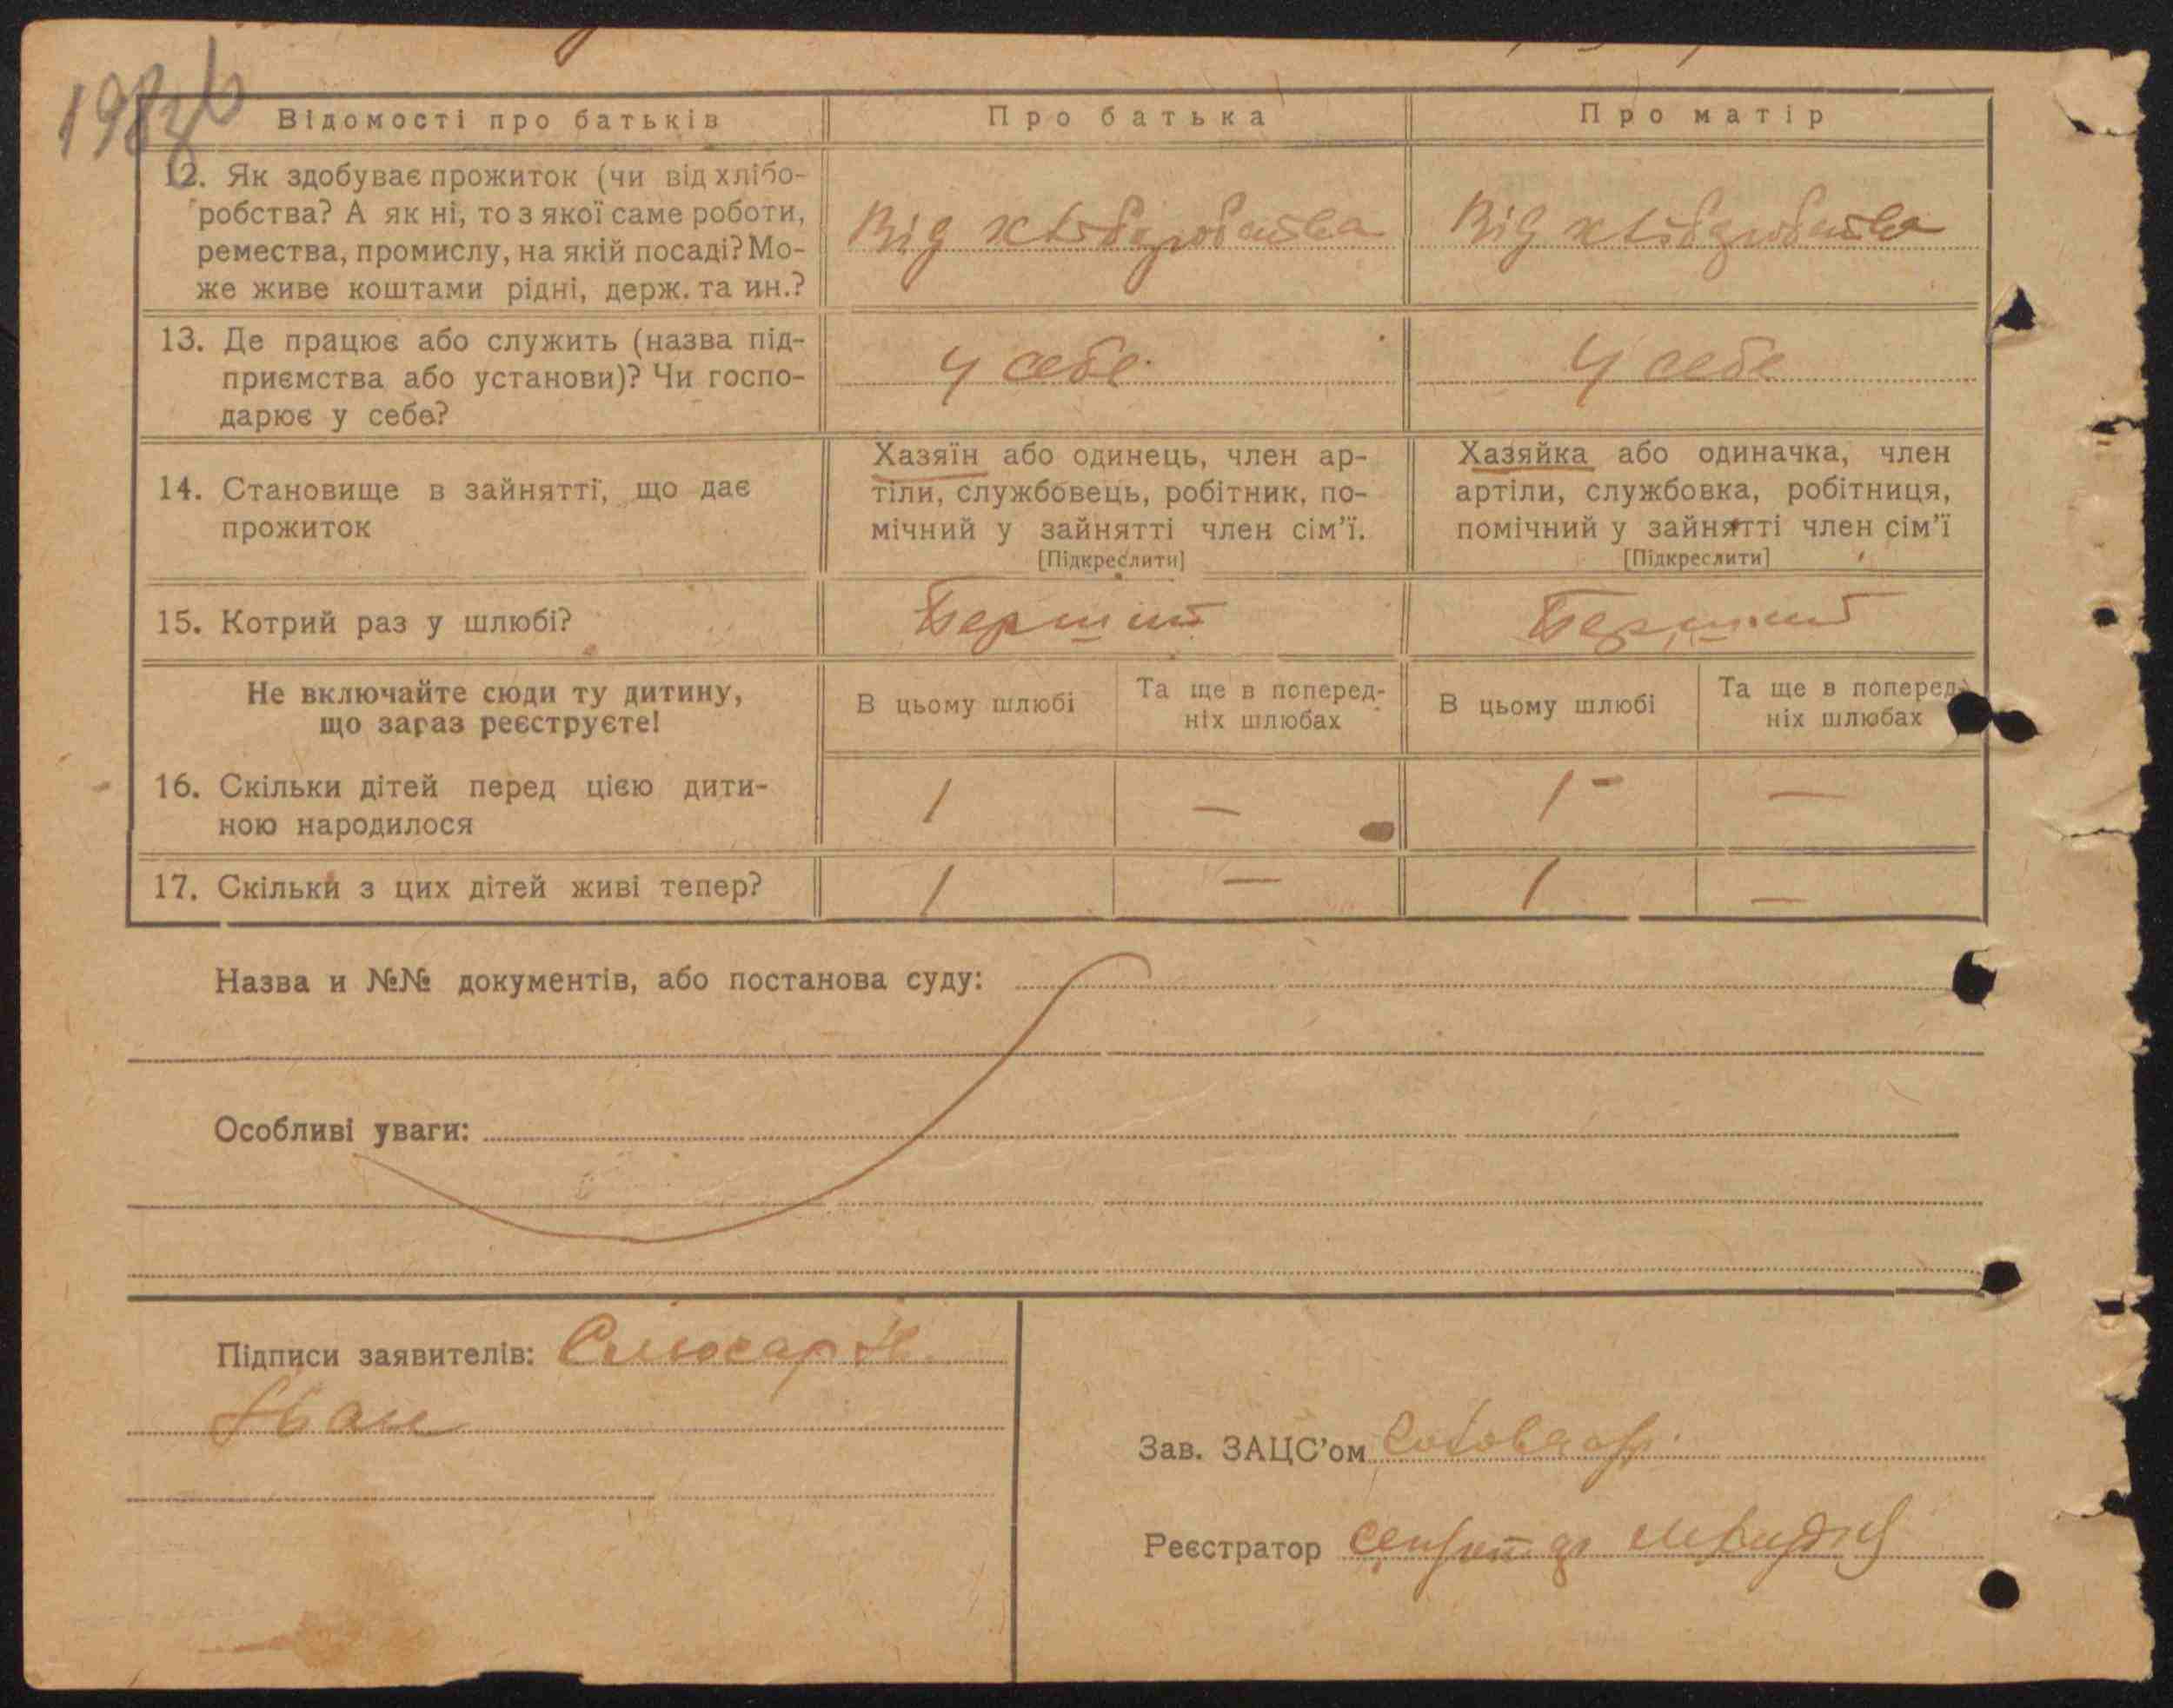 198зв
Відомості про батьків
Про батька
Про матір
12. Як здобуває прожиток (чи від хлібо-
робства? А як ні, то з якої саме роботи,
ремества, промислу, на якій посаді? Мо-
же живе коштами рідні, держ. та ин.?
Від хліборобства
Від хліборобства
13. Де працює або служить (назва під-
приємства або установи)? Чи госпо-
дарює у себе?
У себе
У себе
14. Становище в зайнятті, що дає
прожиток
Хазяїн або одинець, член ар-
тіли, службовець, робітник, по-
мічний у зайнятті член сім’ї.
[Підкреслити]
Хазяйка або одиначка, член
артіли, службовка, робітниця,
помічний у зайнятті член сім’ї
[Підкреслити]
15. Котрий раз у шлюбі?
Перший
Перший
Не включайте сюди ту дитину,
що зараз реєструєте!
В цьому шлюбі
Та ще в поперед-
ніх шлюбах
В цьому шлюбі
Та ще в поперед-
ніх шлюбах
16. Скільки дітей перед цією дити-
ною народилося
1
—
1 -
—
17. Скільки з цих дітей живі тепер?
1
—
1
—
Назва и №№ документів, або постанова суду:
Особливі уваги:
Підписи заявителів: Слюсар
Іван
Зав. ЗАЦС’ом
Реєстратор